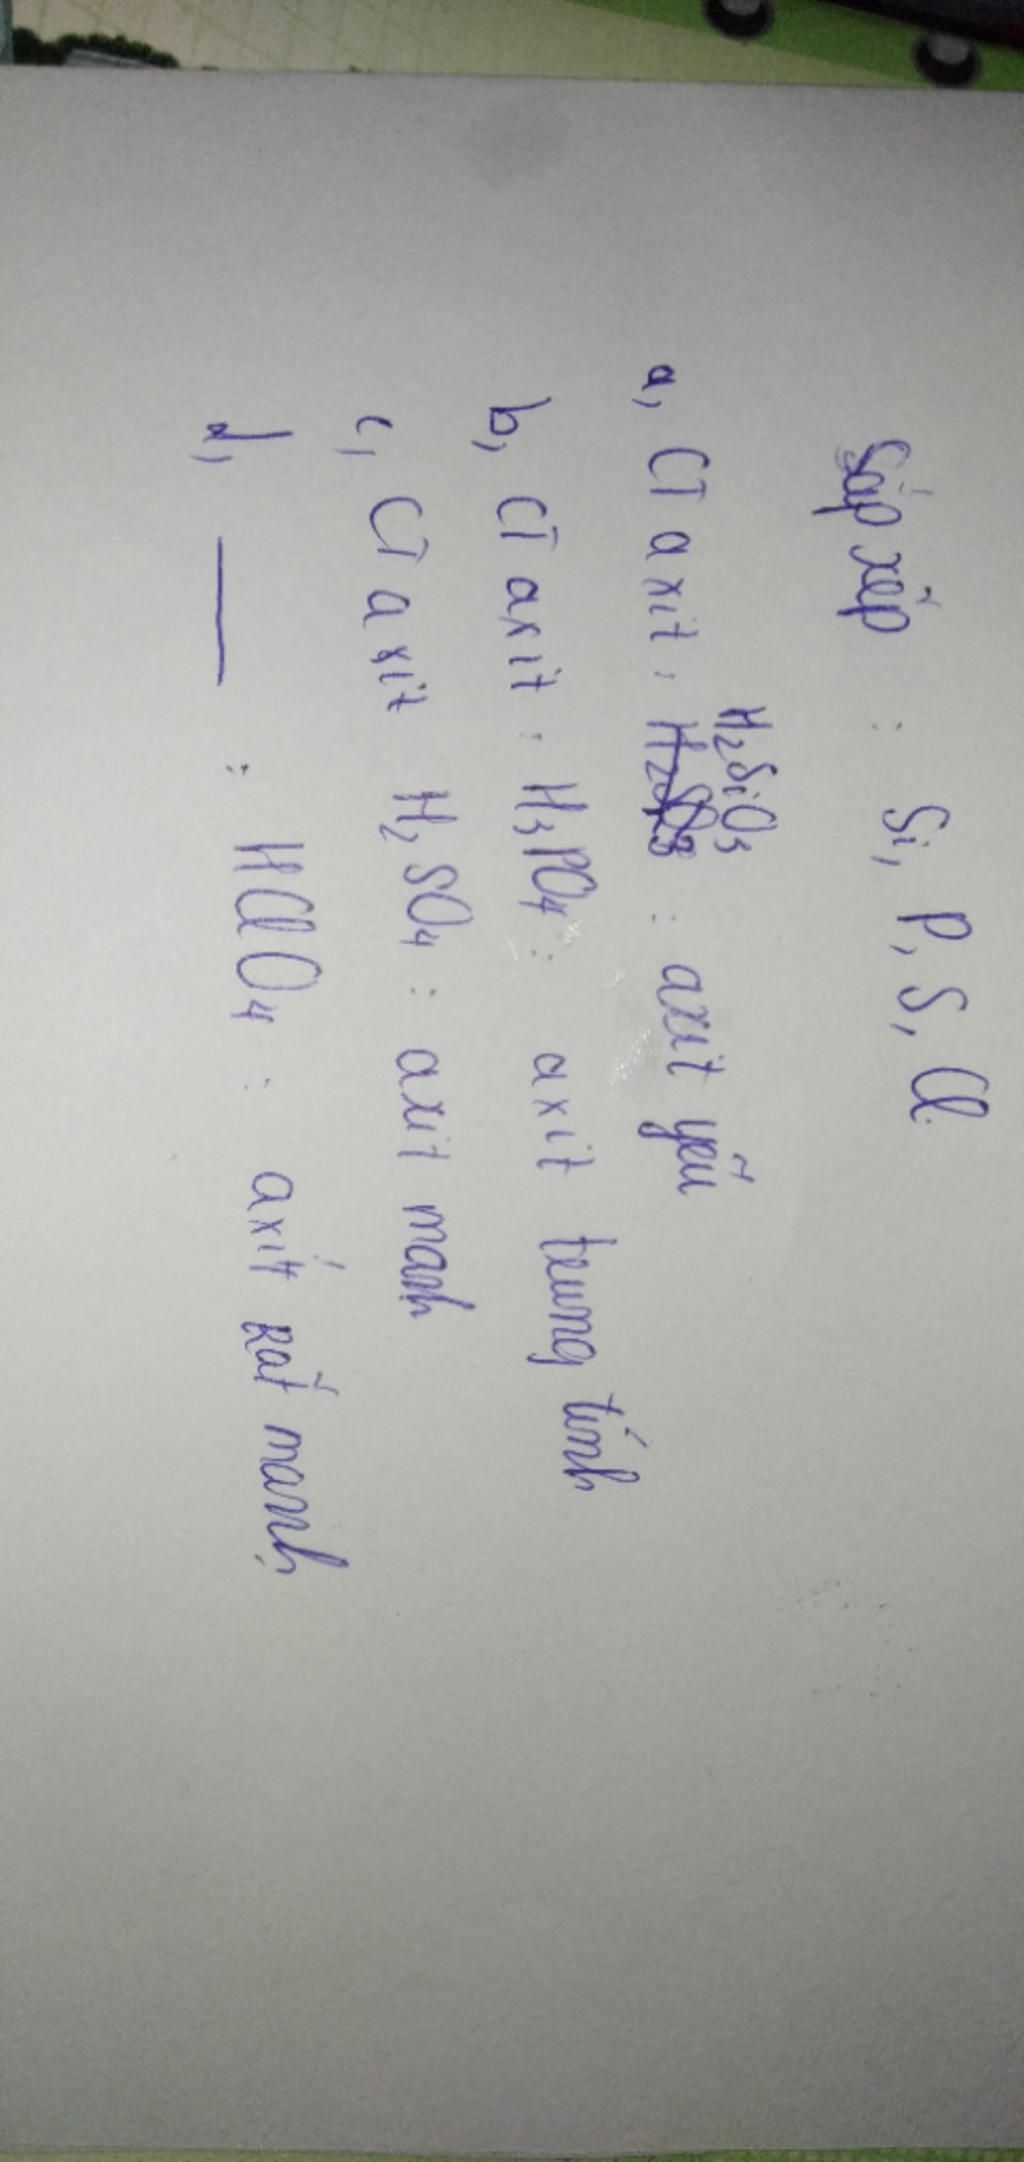 Sắp xếp : Si, P, S, Cl.
a, CT axit : H₂SiO₃ : axit yếu
b, CT axit : H₃PO₄ : axit trung tính
c, CT axit H₂SO₄ : axit mạnh
d, —— : HClO₄ : axit rất mạnh